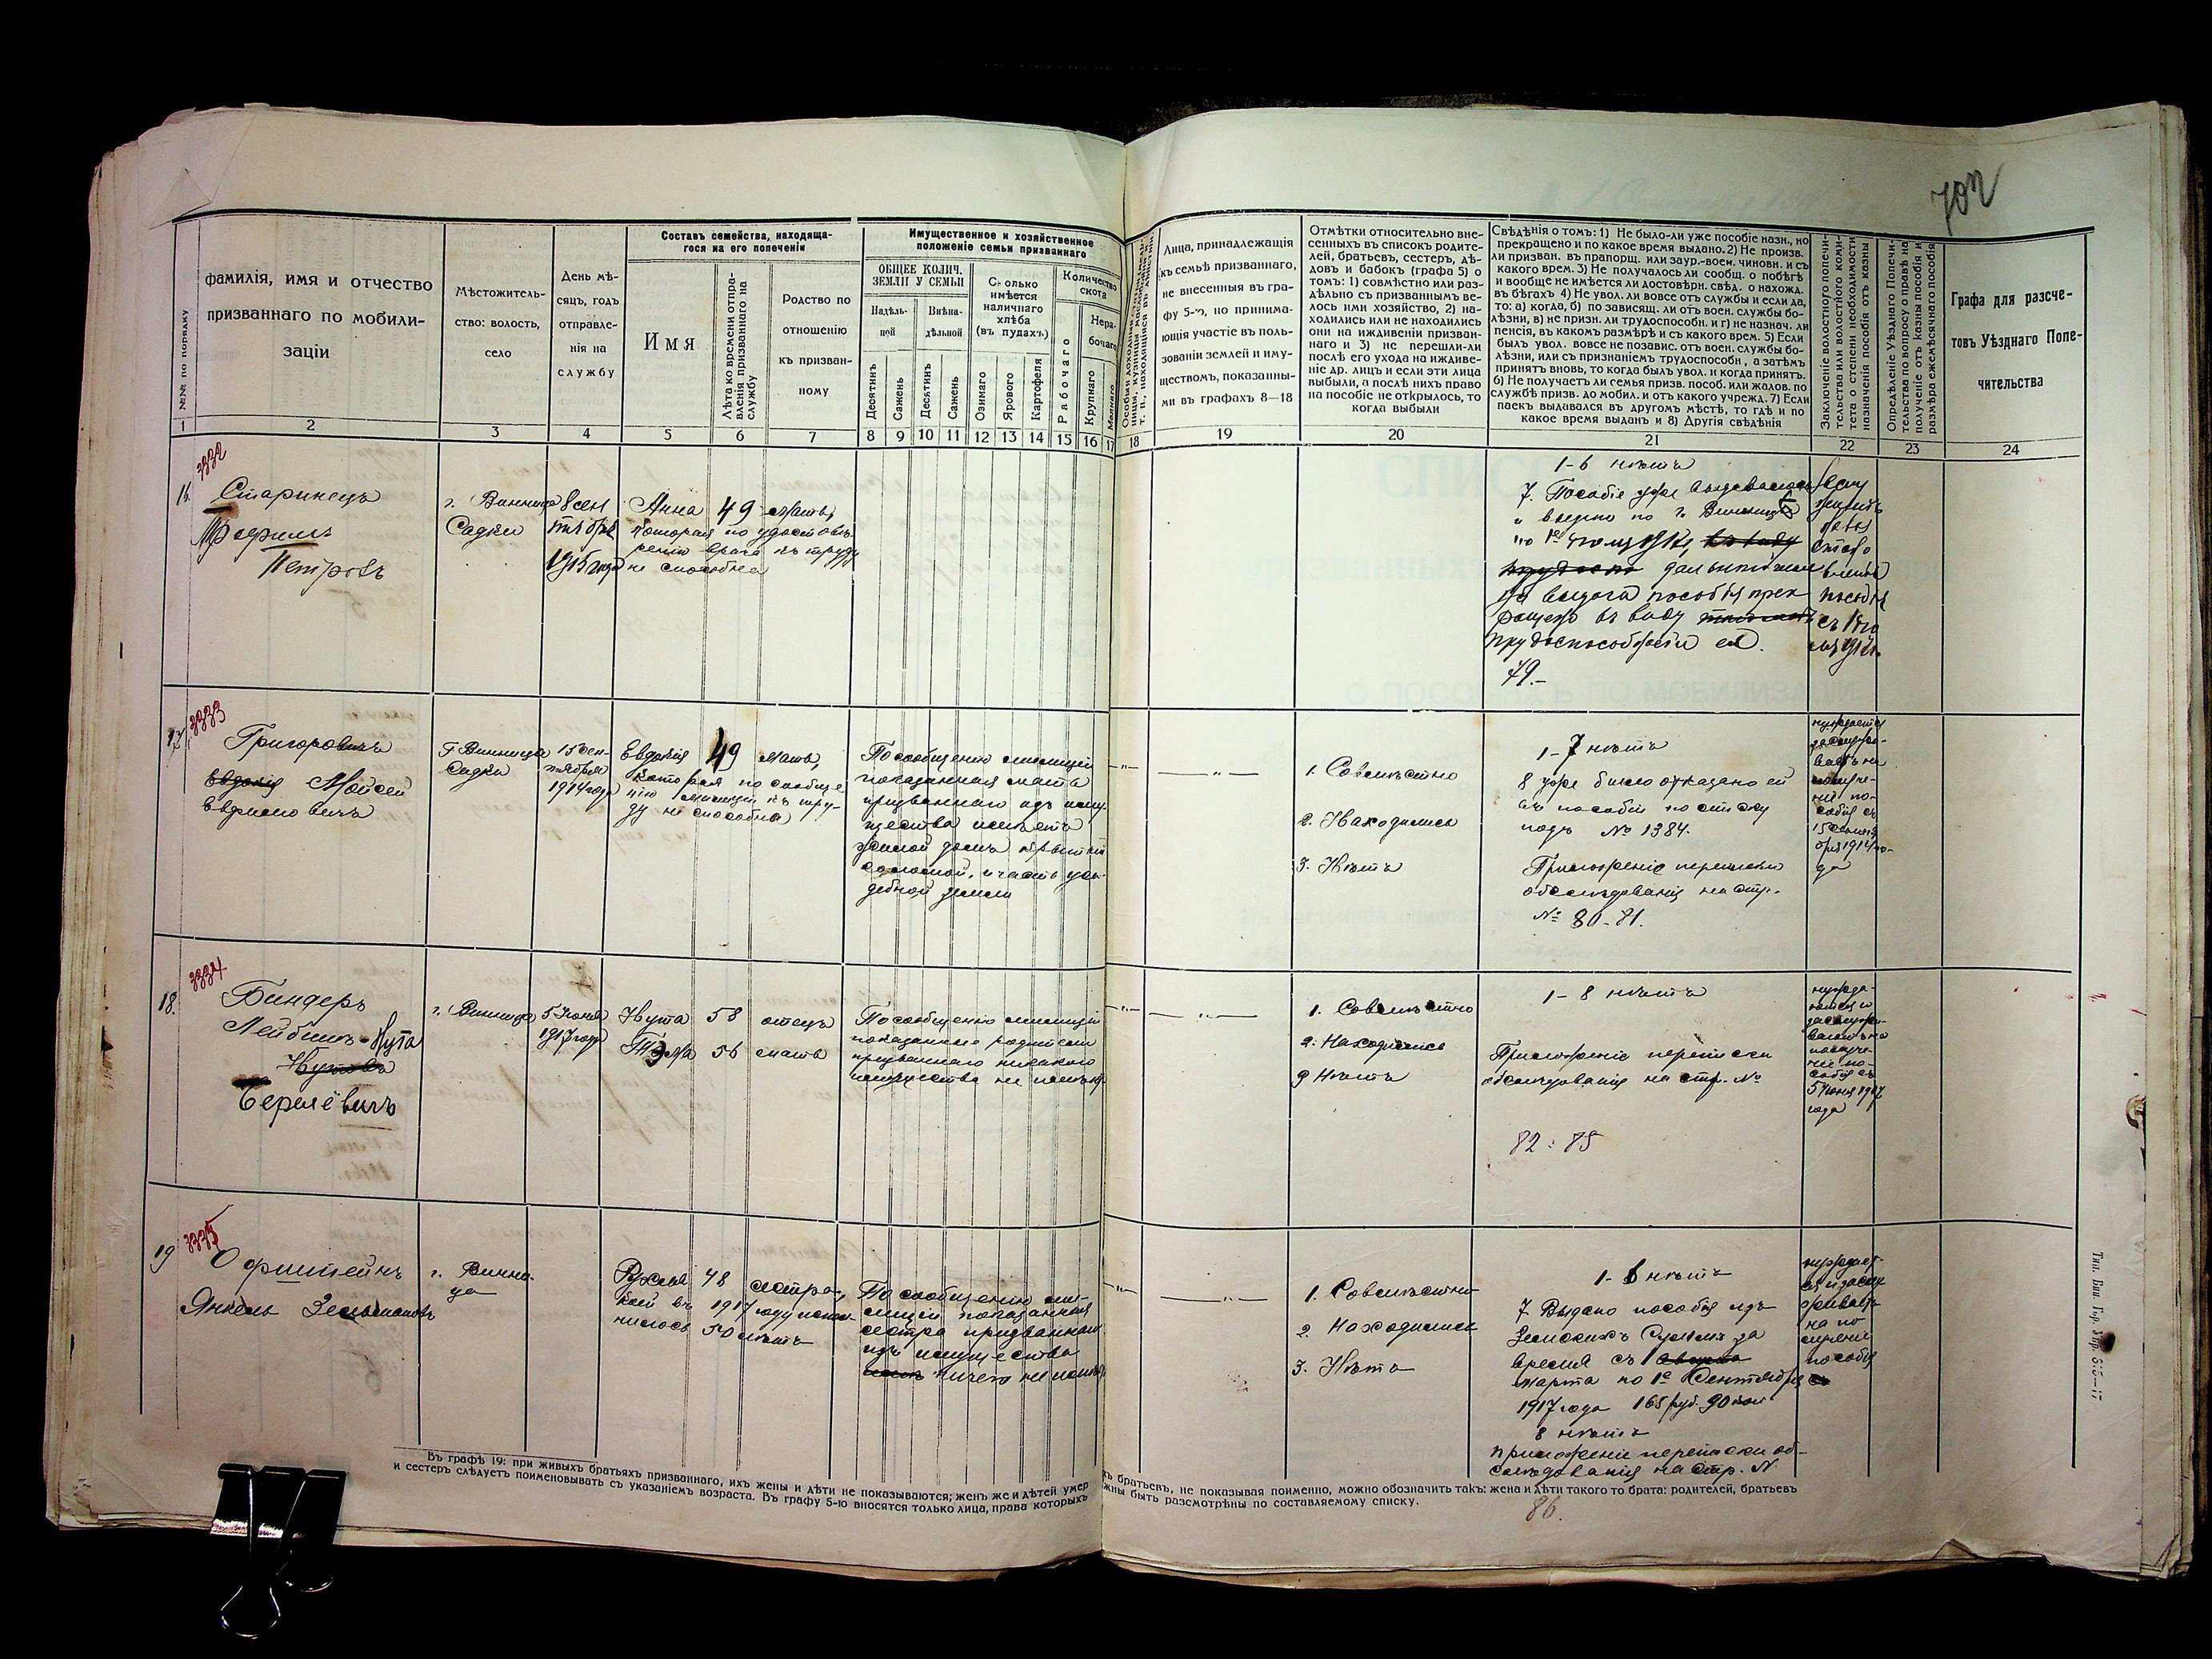 702
фамилія, имя и отчество
призваннаго по мобили-
заціи
Мѣстожитель-
ство: волость,
село
День мѣ-
сяцъ, годъ
отправле-
нія на
службу
Составъ семейства, находяща-
гося на его попеченіи
Имя
Лѣта ко времени отпра-
вленія призваннаго на
службу
Родство по
отношенію
къ призван-
ному
Имущественное и хозяйственное
положеніе семьи призваннаго
ОБЩЕЕ КОЛИЧ.
ЗЕМЛИ У СЕМЬИ
Надѣль-
ной
Внѣна-
дѣльной
Десятинъ
Сажень
Десятинъ
Сажень
Сколько
имѣется
наличнаго
хлѣба
(въ пудахъ)
Озимаго
Яроваго
Картофеля
Количество
скота
Рабочаго
Нера-
бочаго
Крупнаго
Мелкаго
Лица, принадлежащія
къ семьѣ призваннаго,
не внесенныя въ гра-
фу 5-ю, но принима-
ющія участіе въ поль-
зованіи землей и иму-
ществомъ, показанны-
ми въ графахъ 8—18
Отмѣтки относительно вне-
сенныхъ въ списокъ родите-
лей, братьевъ, сестеръ, дѣ-
довъ и бабокъ (графа 5) о
томъ: 1) совмѣстно или раз-
дѣльно съ призваннымъ ве-
лось ими хозяйство, 2) на-
ходились или не находились
они на иждивеніи призван-
наго и 3) не перешли-ли
послѣ его ухода на иждиве-
ніе др. лицъ и если эти лица
выбыли, а послѣ нихъ право
на пособіе не открылось, то
когда выбыли
Свѣдѣнія о томъ: 1) Не было-ли уже пособіе назн., но
прекращено и по какое время выдано. 2) Не произв.
ли призван. въ прапорщ. или заур.-воен. чиновн. и съ
какого врем. 3) Не получалось ли сообщ. о побѣгѣ
и вообще не имѣется ли достовѣрн. свѣд. о нахожд.
въ бѣгахъ 4) Не увол. ли вовсе отъ службы и если да,
то: а) когда, б) по зависящ. ли отъ воен. службы бо-
лѣзни, в) не призн. ли трудоспособн. и г) не назнач. ли
пенсія, въ какомъ размѣрѣ и съ какого врем. 5) Если
былъ увол. вовсе не позавис. отъ воен. службы бо-
лѣзни, или съ признаніемъ трудоспособн., а затѣмъ
принятъ вновь, то когда былъ увол. и когда принятъ.
6) Не получаетъ ли семья призв. пособ. или жалов. по
службѣ призв. до мобил. и отъ какого учрежд. 7) Если
паекъ выдавался въ другомъ мѣстѣ, то гдѣ и по
какое время выданъ и 8) Другія свѣдѣнія
Заключеніе волостного попечи-
тельства или волостного коми-
тета о степени необходимости
назначенія пособія отъ казны
Опредѣленіе Уѣзднаго Попечи-
тельства по вопросу о правѣ на
полученіе отъ казны пособія и
размѣра ежемѣсячнаго пособія
Графа для разсче-
товъ Уѣзднаго Попе-
чительства
№№ по порядку
1 2 3 4 5 6 7 8 9 10 11 12 13 14 15 16 17 18 19 20 21 22 23 24
3332
16. Старинецъ
Трофимъ
Петровъ
г. Винница
Садки
8 сен
тября
1915 года
Анна 49 мать,
которая по удостовѣ-
ренію врача къ труду
не способна
1-6 нѣтъ
7. Пособіе уже выдавалось
и выдано по г. Винницѣ
дальнѣйшая
выдача пособія прек
ращено въ виду
трудоспособности ея.
79.-
3333
17. Григоровичъ
Евдокія Мойсей
г. Винница
Садки
15 сен-
тября
1914 года
Евдокія 49 мать,
которая по сообще
нію милиціи къ тру-
ду не способна
По сообщенію милиціи
показанная мать
призваннаго изъ иму-
щества имѣетъ
жилой домъ крытый
соломой, и часть уса-
дебной земли
1. Совмѣстно
2. Находились
3. Нѣтъ
1-7 нѣтъ
8 уже было отказано ей
въ пособіи по списку
подъ № 1384.
Приложеніе переписки
обслѣдованія на стр.
№ 80-81.
нуждается
заслужи-
ваетъ на
получе-
ніе по-
собія съ
15 Сентя
бря 1914 го-
да
3334
18. Биндеръ
Лейбишъ-Нута
Нутовъ
Берлевичъ
г. Винница
5 Іюня
1917 года
Нута 58 отецъ
56 мать
По сообщенію милиціи
показанные родители
призваннаго никакого
имущества не имѣютъ
1. Совмѣстно
2. Находились
3 Нѣтъ
1-8 нѣтъ
Приложеніе переписки
обслѣдованія на стр. №
82-85
нужда-
ются и
заслужи-
ваютъ на
получе-
ніе по-
собія съ
5 Іюня 1917
года
3335
19 Офштейнъ
Янкель Зельмановъ
г. Винни-
ца
Рухля 48 сестра,
коей въ 1917 году испол-
нилось 50 лѣтъ
По сообщенію ми-
лиціи показанная
сестра призваннаго
изъ имущества
ничего не имѣетъ
1. Совмѣстно
2. Находились
3. Нѣтъ
1-6 нѣтъ
7 Выдано пособія изъ
Земскихъ Суммъ за
время съ 1 августа
марта по 1е Сентября
1917 года 165 руб. 90 коп
8 нѣтъ
приложеніе переписки об-
слѣдованія на стр. №
86.
нуждает-
ся и заслу
живаетъ
на по
лученіе
пособія
Въ графѣ 19: при живыхъ братьяхъ призваннаго, ихъ жены и дѣти не показываются; женъ же и дѣтей умер
и сестеръ слѣдуетъ поименовывать съ указаніемъ возраста. Въ графу 5-ю вносятся только лица, права которыхъ
хъ братьевъ, не показывая поименно, можно обозначить такъ: жена и дѣти такого то брата: родителей, братьевъ
жны быть разсмотрѣны по составляемому списку.